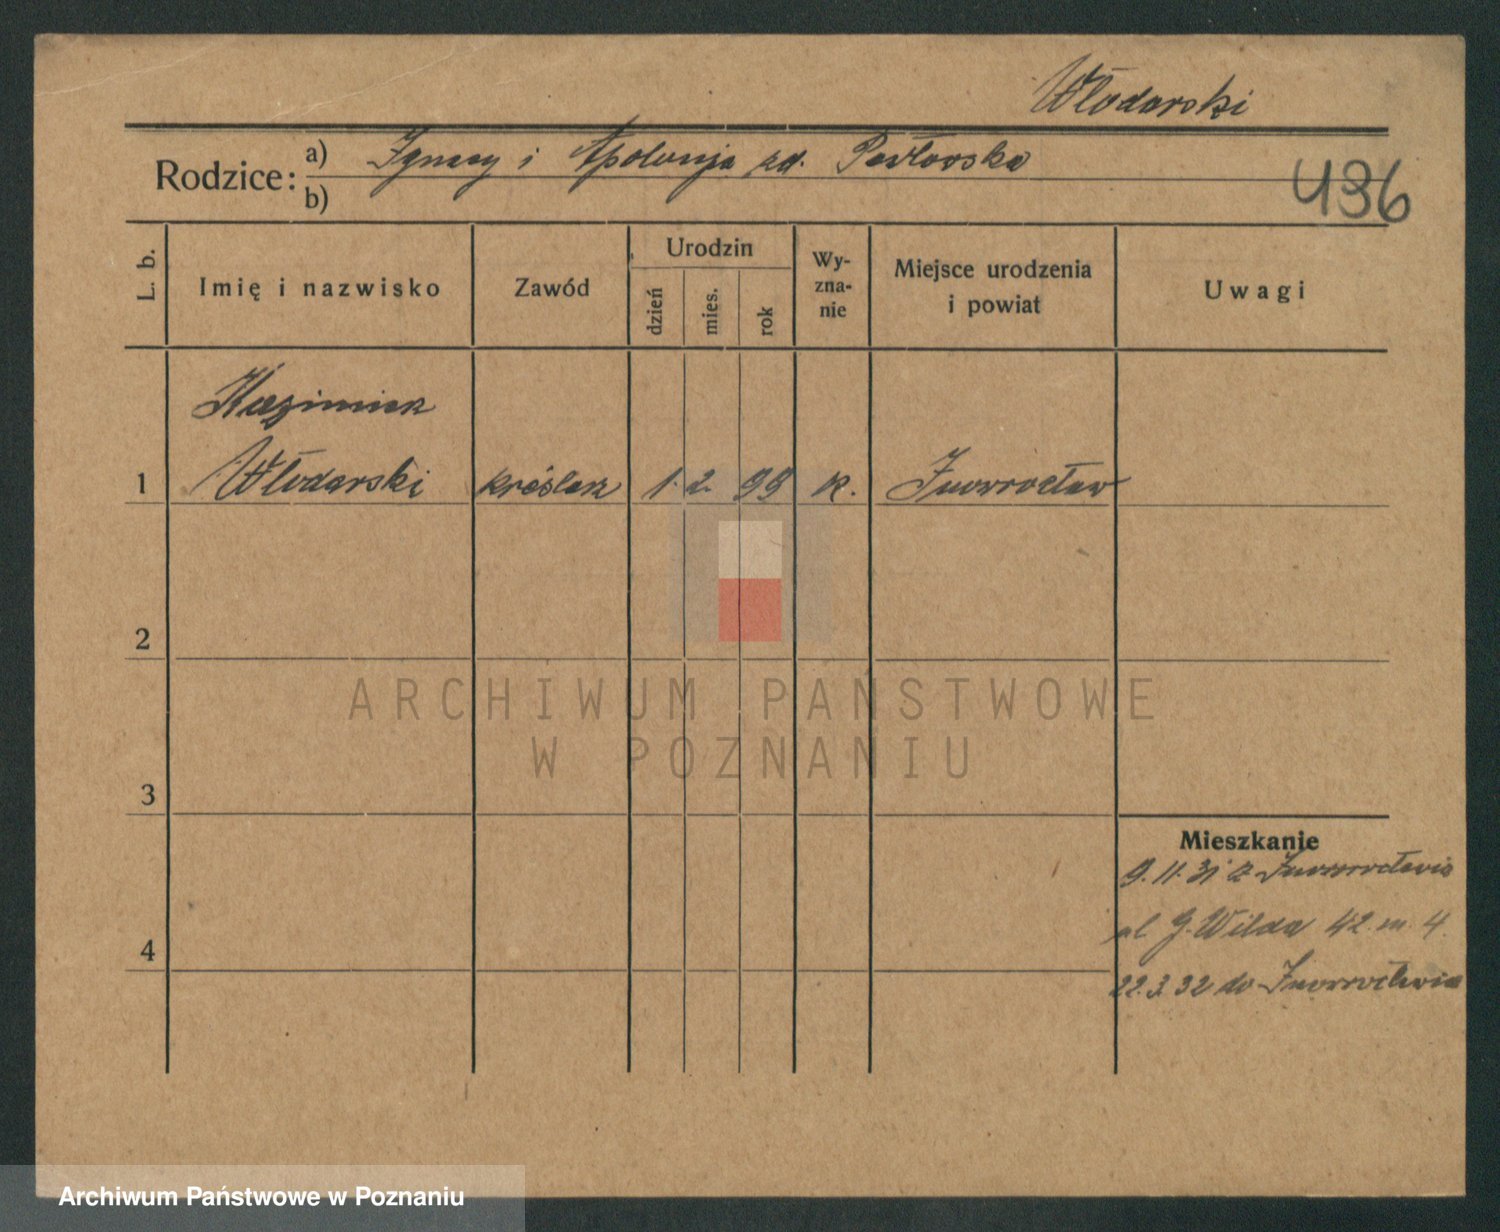 Włodarski
Rodzice: a) Ignacy i Apolonja zd. Pawłowska
b)
436
L. b.
Imię i nazwisko
Zawód
Urodzin
dzień
mies.
rok
Wy-
zna-
nie
Miejsce urodzenia
i powiat
Uwagi
Kazimierz
1 Włodarski kreślarz 1. 2. 99 k. Inowrocław
2
3
Mieszkanie
9.11.31 z Inowrocławia
ul G. Wilda 42 m. 4.
4
22.3.32 do Inowrocławia
ARCHIWUM PAŃSTWOWE
W POZNANIU
Archiwum Państwowe w Poznaniu